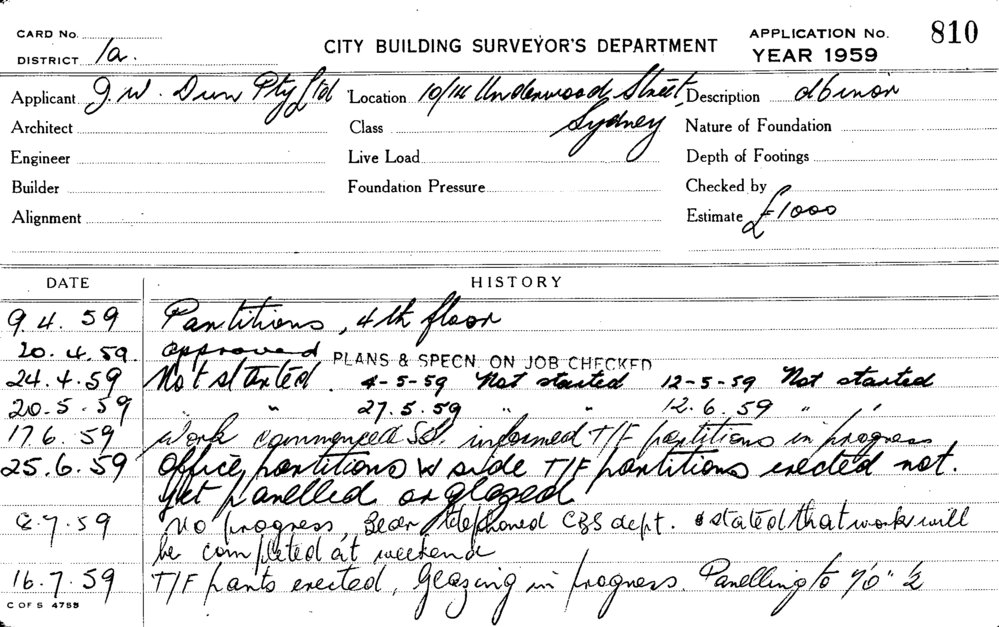 CARD No.
DISTRICT 1a.
CITY BUILDING SURVEYOR'S DEPARTMENT
APPLICATION No. 810
YEAR 1959
Applicant J. W. Dunn Pty Ltd Location 10/14 Underwood Street, Description
Architect Class Sydney Nature of Foundation
Engineer Live Load Depth of Footings
Builder Foundation Pressure Checked by
Alignment Estimate £1000
DATE HISTORY
9.4.59 Partitions, 4th floor
20.4.59 approved PLANS & SPECN. ON JOB CHECKED
24.4.59 Not started. 4-5-59 Not started 12-5-59 Not started
20.5.59 " " 27.5.59 " " 12.6.59 " "
17.6.59 Work commenced informed T/F partitions in progress
25.6.59 Office partitions W side T/F partitions erected not.
Yet panelled or glazed
2.7.59 No progress, telephoned CBS dept. & stated that work will
be completed at weekend
16.7.59 T/F parts erected, Glazing in progress. Panelling to 7'0" ½
C OF S 4755